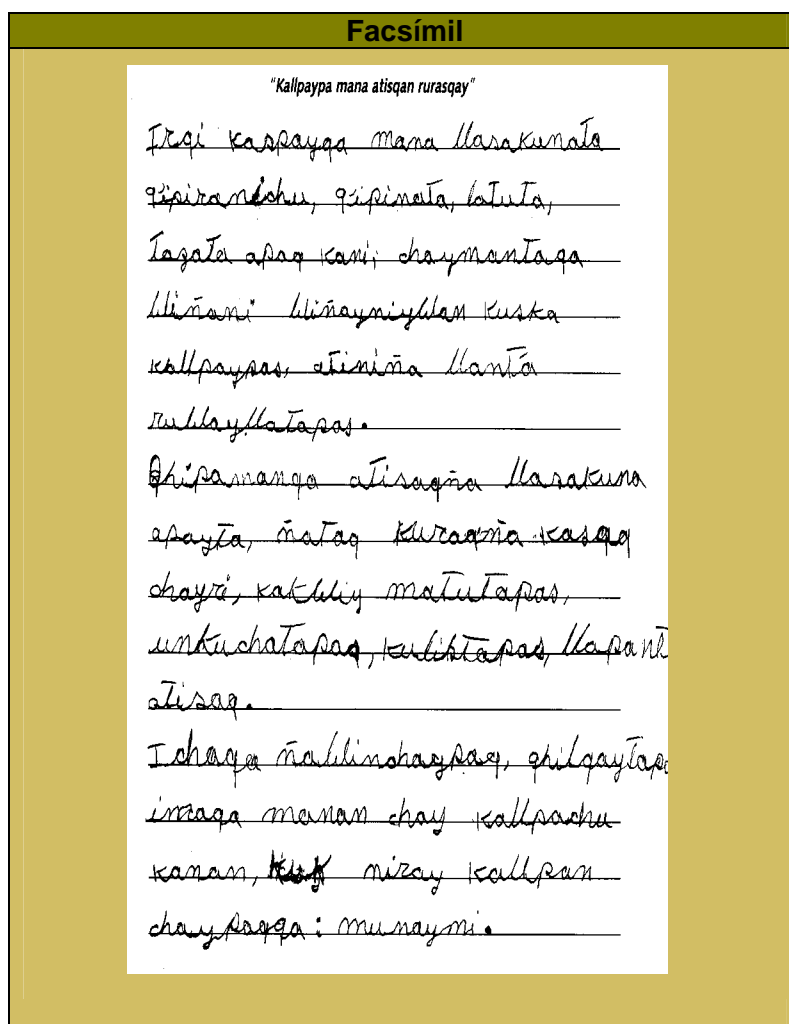 Facsímil
"Kallpaypa mana atisqan rurasqay"
Irqi kaspayqa mana llasakunata
q'ipiranichu, q'ipinata, latuta,
tazata apaq kani; chaymantaqa
wiñani wiñayniywan kuska
kallpaypas, atiniña llanta
ruwayllatapas.
Qhipamanqa atisaqña llasakuna
apayta, ñataq kuraqña kasqaq
chayri, kakwiy matutapas,
unkuchatapas, llapant
atisaq.
Ichaqa ñawinchaypaq, qhilqaytapa
imaqa manan chay kallpachu
kanan, niray kallpan
chaypaqqa: munaymi.